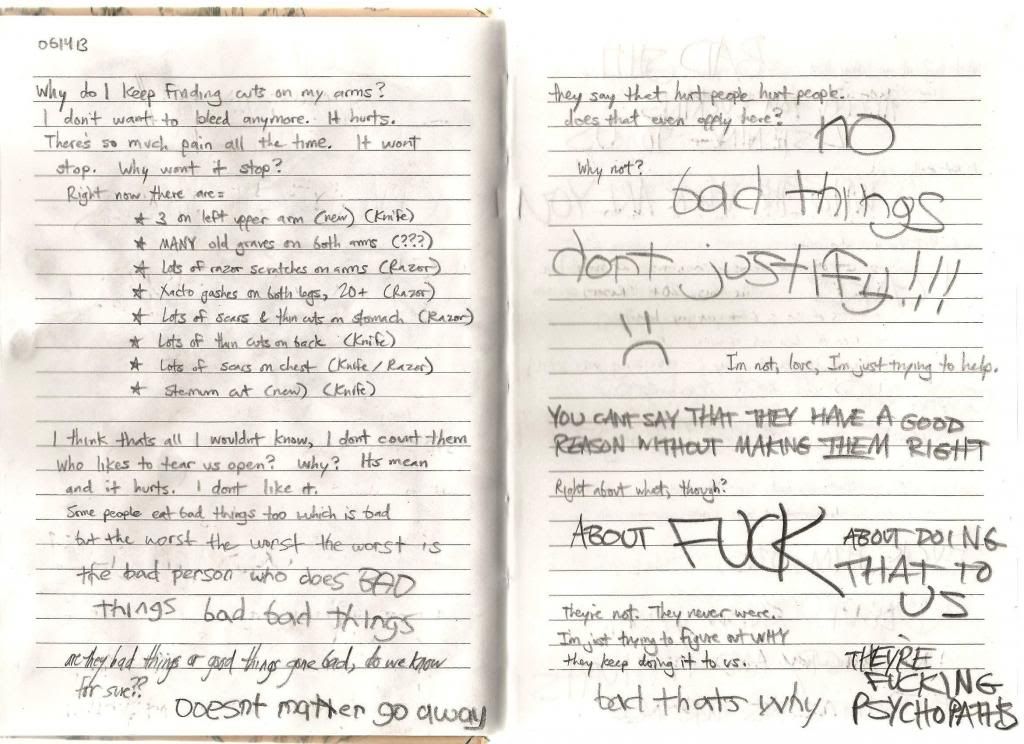 061413
Why do I keep finding cuts on my arms?
I don't want to bleed anymore. It hurts.
There's so much pain all the time. It wont
stop. Why wont it stop?
Right now there are:
★ 3 on left upper arm (new) (Knife)
★ MANY old graves on both arms (???)
★ Lots of razor scratches on arms (Razor)
★ Xacto gashes on both legs, 20+ (Razor)
★ Lots of scars & thin cuts on stomach (Razor)
★ Lots of thin cuts on back (Knife)
★ Lots of scars on chest (Knife / Razor)
★ Sternum cut (new) (Knife)
I think thats all I wouldnt know, I dont count them
Who likes to tear us open? Why? Its mean
and it hurts. I dont like it.
Some people eat bad things too which is bad
but the worst the worst the worst is
the bad person who does BAD
things bad bad things
are they bad things or good things gone bad, do we know
for sure??
Doesnt matter go away
they say that hurt people hurt people.
does that even apply here?
NO
Why not?
bad things
dont justify!!!
:(
Im not, love, Im just trying to help.
YOU CANT SAY THAT THEY HAVE A GOOD
REASON WITHOUT MAKING THEM RIGHT
Right about what, though?
ABOUT FUCK ABOUT DOING
THAT TO
US
They're not. They never were.
Im just trying to figure out WHY
they keep doing it to us.
bad thats why
THEYRE
FUCKING
PSYCHOPATHS